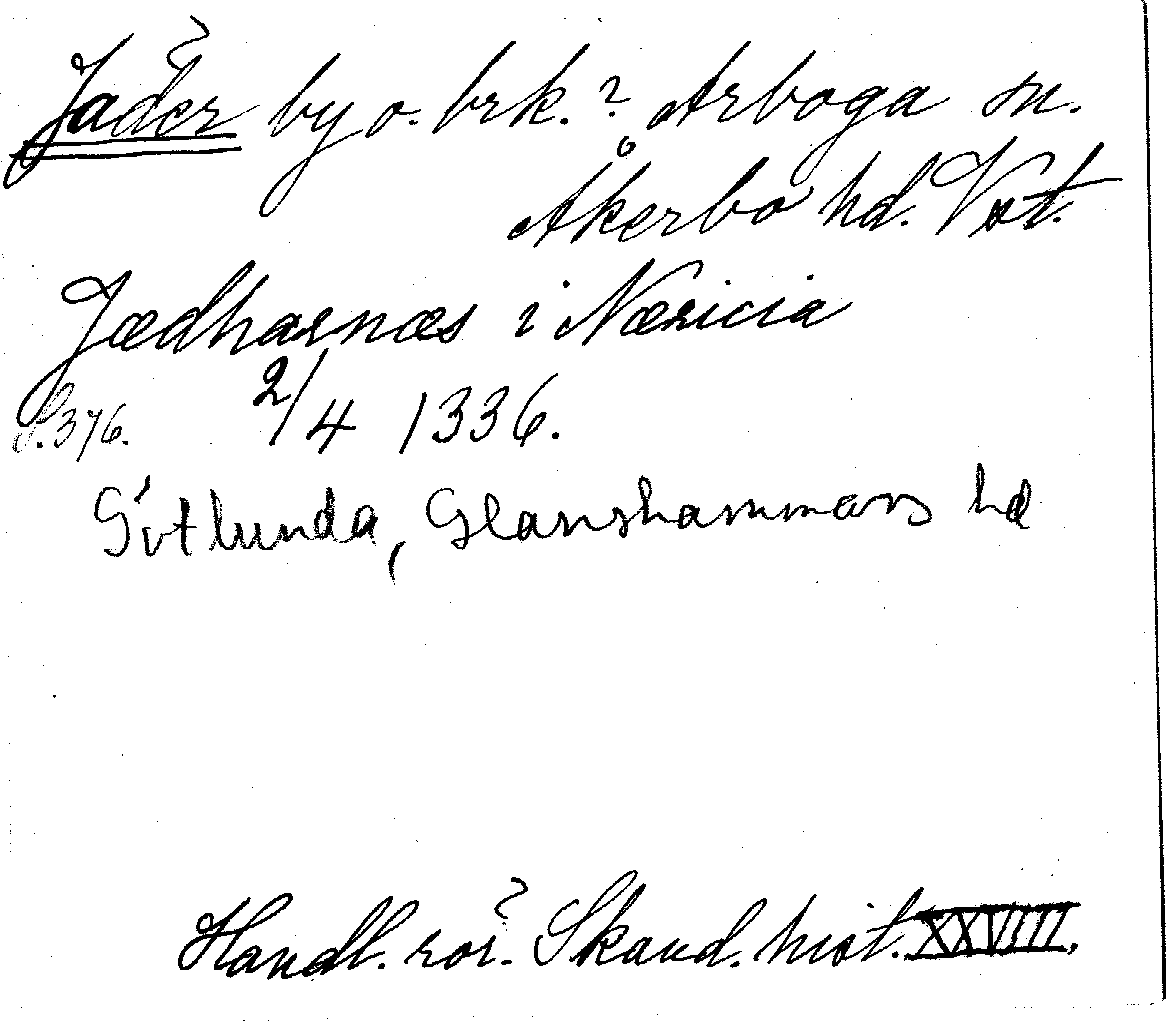 Jäder by o. brk.? Arboga sn.
Åkerbo hd. Vst.
Jædharnæs i Næricia
S.376. 2/4 1336.
Götlunda, Glanshammars hd
Handl. rör. Skand. hist. XXVIII.